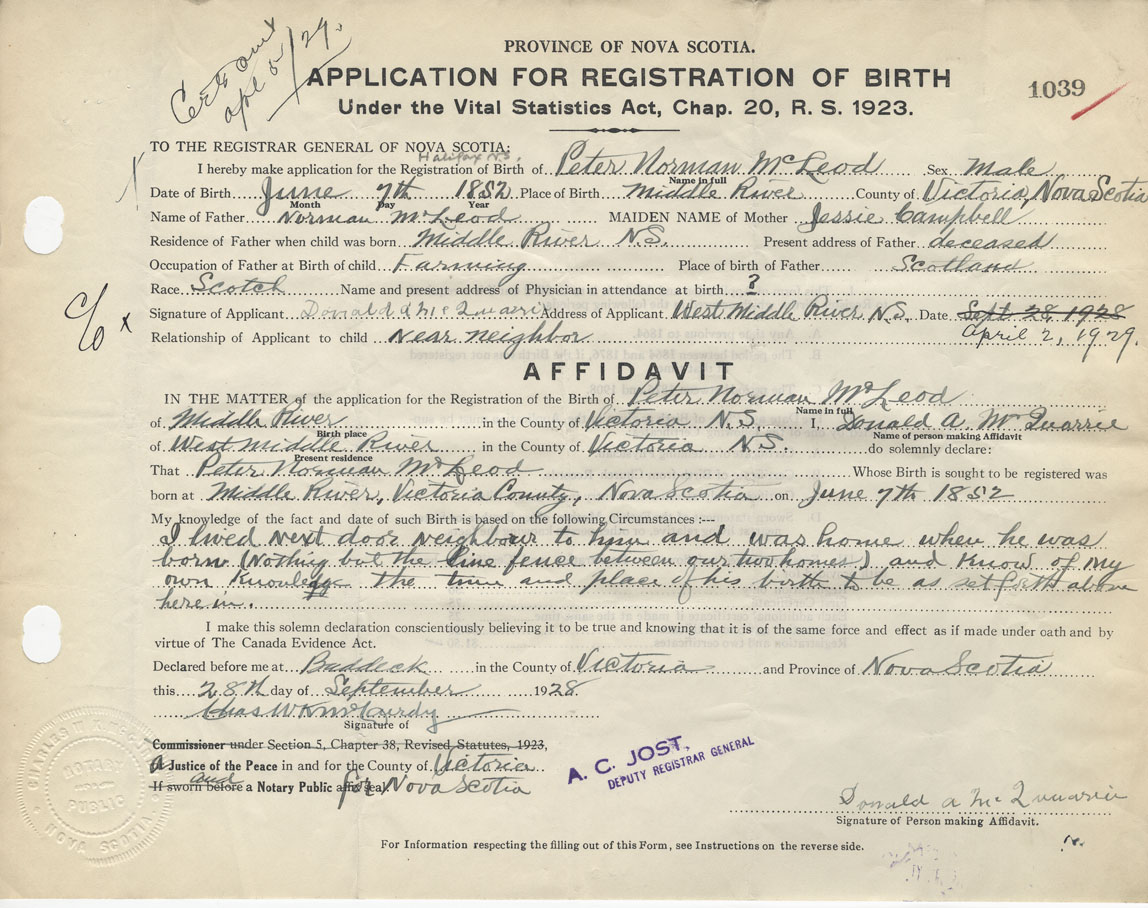 Cert out
apl 5/29.
PROVINCE OF NOVA SCOTIA.
APPLICATION FOR REGISTRATION OF BIRTH
1039
Under the Vital Statistics Act, Chap. 20, R. S. 1923.
TO THE REGISTRAR GENERAL OF NOVA SCOTIA:
Halifax N.S.
I hereby make application for the Registration of Birth of Peter Norman McLeod Sex Male
Name in full
Date of Birth June 7th 1852 Place of Birth Middle River County of Victoria, Nova Scotia
Month Day Year
Name of Father Norman McLeod MAIDEN NAME of Mother Jessie Campbell
Residence of Father when child was born Middle River N.S. Present address of Father deceased
Occupation of Father at Birth of child Farming Place of birth of Father Scotland
Race Scotch Name and present address of Physician in attendance at birth ?
c/o x Signature of Applicant Donald A McQuarrie Address of Applicant West Middle River N.S. Date Sept 28 1928
Relationship of Applicant to child Near neighbor April 2, 1929.
AFFIDAVIT
IN THE MATTER of the application for the Registration of the Birth of Peter Norman McLeod
Name in full
of Middle River in the County of Victoria N.S. I, Donald A. McQuarrie
Birth place Name of person making Affidavit
of West Middle River in the County of Victoria N.S. do solemnly declare:
Present residence
That Peter Norman McLeod Whose Birth is sought to be registered was
born at Middle River, Victoria County, Nova Scotia on June 7th 1852
My knowledge of the fact and date of such Birth is based on the following Circumstances :---
I lived next door neighbour to him and was home when he was
born (Nothing but the line fence between our two homes) and know of my
own knowledge the time and place of his birth to be as set forth above
here in.
I make this solemn declaration conscientiously believing it to be true and knowing that it is of the same force and effect as if made under oath and by
virtue of The Canada Evidence Act.
Declared before me at Baddeck in the County of Victoria and Province of Nova Scotia
this 28th day of September 1928
Chas W K McCurdy
Signature of
Commissioner under Section 5, Chapter 38, Revised Statutes, 1923,
A Justice of the Peace in and for the County of Victoria
and
If sworn before a Notary Public affix seal. for Nova Scotia
A. C. JOST,
DEPUTY REGISTRAR GENERAL
Donald A McQuarrie
Signature of Person making Affidavit.
For Information respecting the filling out of this Form, see Instructions on the reverse side.
NOTARY
PUBLIC
NOVA SCOTIA